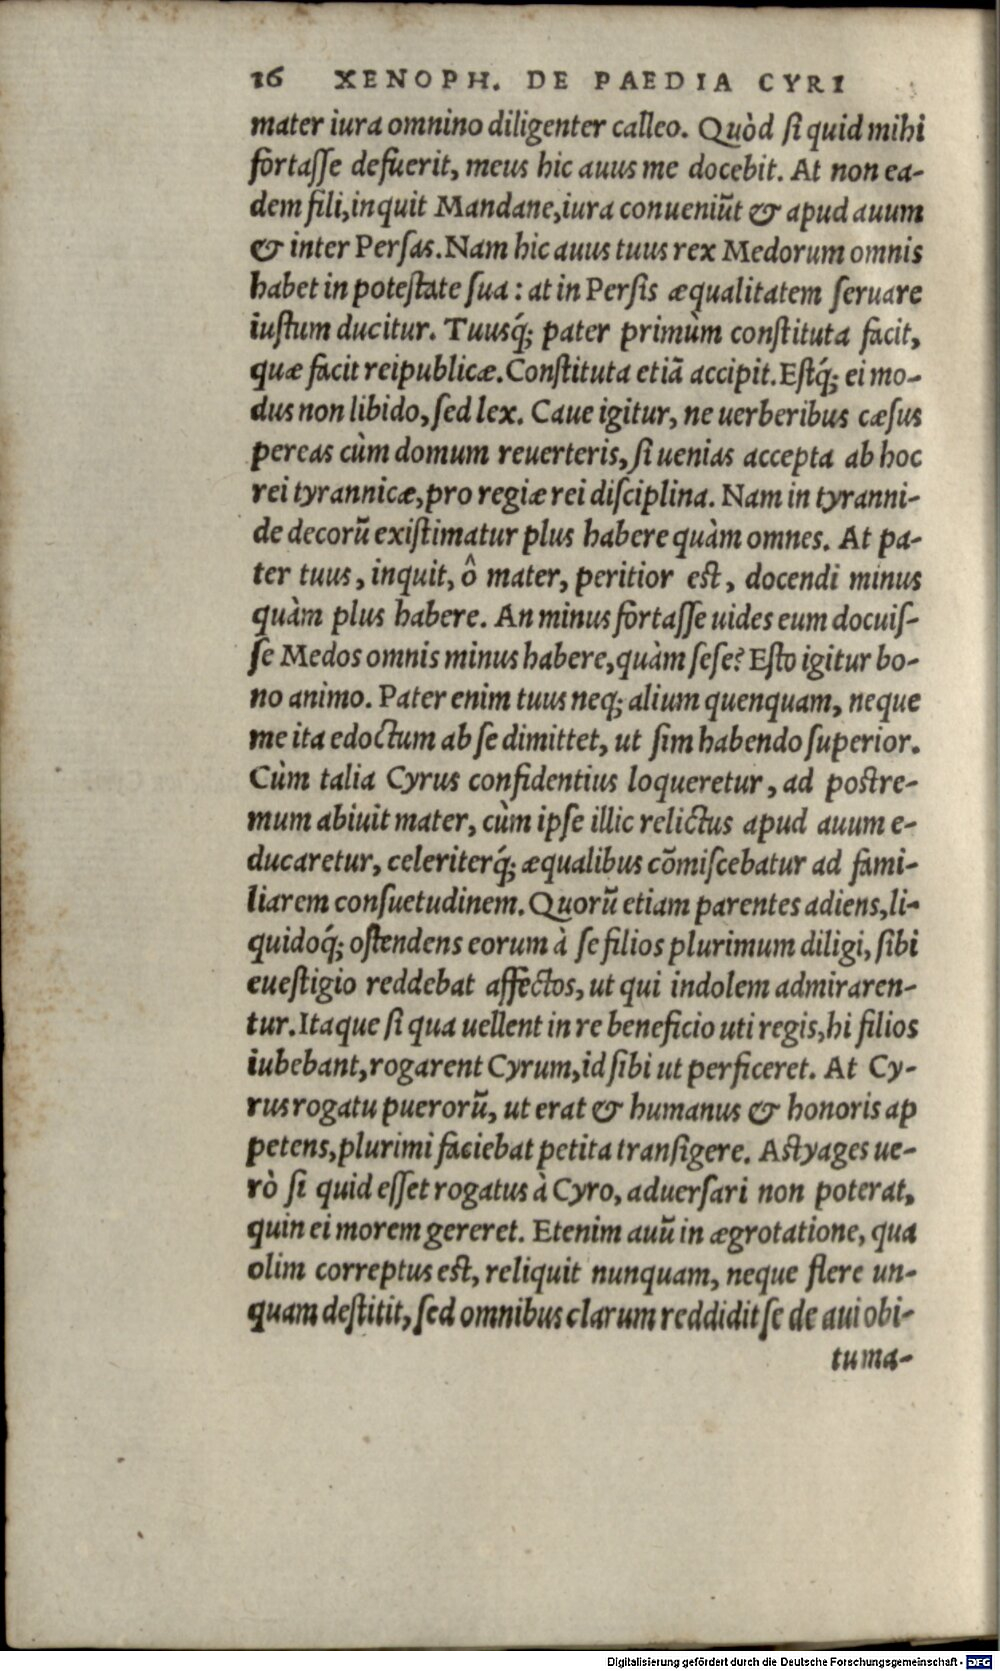 16 XENOPH. DE PAEDIA CYRI
mater iura omnino diligenter calleo. Quòd ſi quid mihi
fortaſſe defuerit, meus hic auus me docebit. At non ea-
dem fili, inquit Mandane, iura conueniũt & apud auum
& inter Perſas. Nam hic auus tuus rex Medorum omnis
habet in poteſtate ſua: at in Perſis æqualitatem ſeruare
iuſtum ducitur. Tuusq́; pater primùm conſtituta facit,
quæ facit reipublicæ. Conſtituta etiã accipit. Eſtq́; ei mo-
dus non libido, ſed lex. Caue igitur, ne uerberibus cæſus
pereas cùm domum reuerteris, ſi uenias accepta ab hoc
rei tyrannicæ, pro regiæ rei diſciplina. Nam in tyranni-
de decorũ exiſtimatur plus habere quàm omnes. At pa-
ter tuus, inquit, ô mater, peritior eſt, docendi minus
quàm plus habere. An minus fortaſſe uides eum docuiſ-
ſe Medos omnis minus habere, quàm ſeſe? Eſto igitur bo-
no animo. Pater enim tuus neq; alium quenquam, neque
me ita edoctum ab ſe dimittet, ut ſim habendo ſuperior.
Cùm talia Cyrus confidentius loqueretur, ad poſtre-
mum abiuit mater, cùm ipſe illic relictus apud auum e-
ducaretur, celeriterq́; æqualibus cõmiſcebatur ad fami-
liarem conſuetudinem. Quorũ etiam parentes adiens, li-
quidoq́; oſtendens eorum à ſe filios plurimum diligi, ſibi
eueſtigio reddebat affectos, ut qui indolem admiraren-
tur. Itaque ſi qua uellent in re beneficio uti regis, hi filios
iubebant, rogarent Cyrum, id ſibi ut perficeret. At Cy-
rus rogatu puerorũ, ut erat & humanus & honoris ap
petens, plurimi faciebat petita tranſigere. Aſtyages ue-
rò ſi quid eſſet rogatus à Cyro, aduerſari non poterat,
quin ei morem gereret. Etenim auũ in ægrotatione, qua
olim correptus eſt, reliquit nunquam, neque flere un-
quam deſtitit, ſed omnibus clarum reddidit ſe de aui obi-
tu ma-
Digitalisierung gefördert durch die Deutsche Forschungsgemeinschaft - DFG